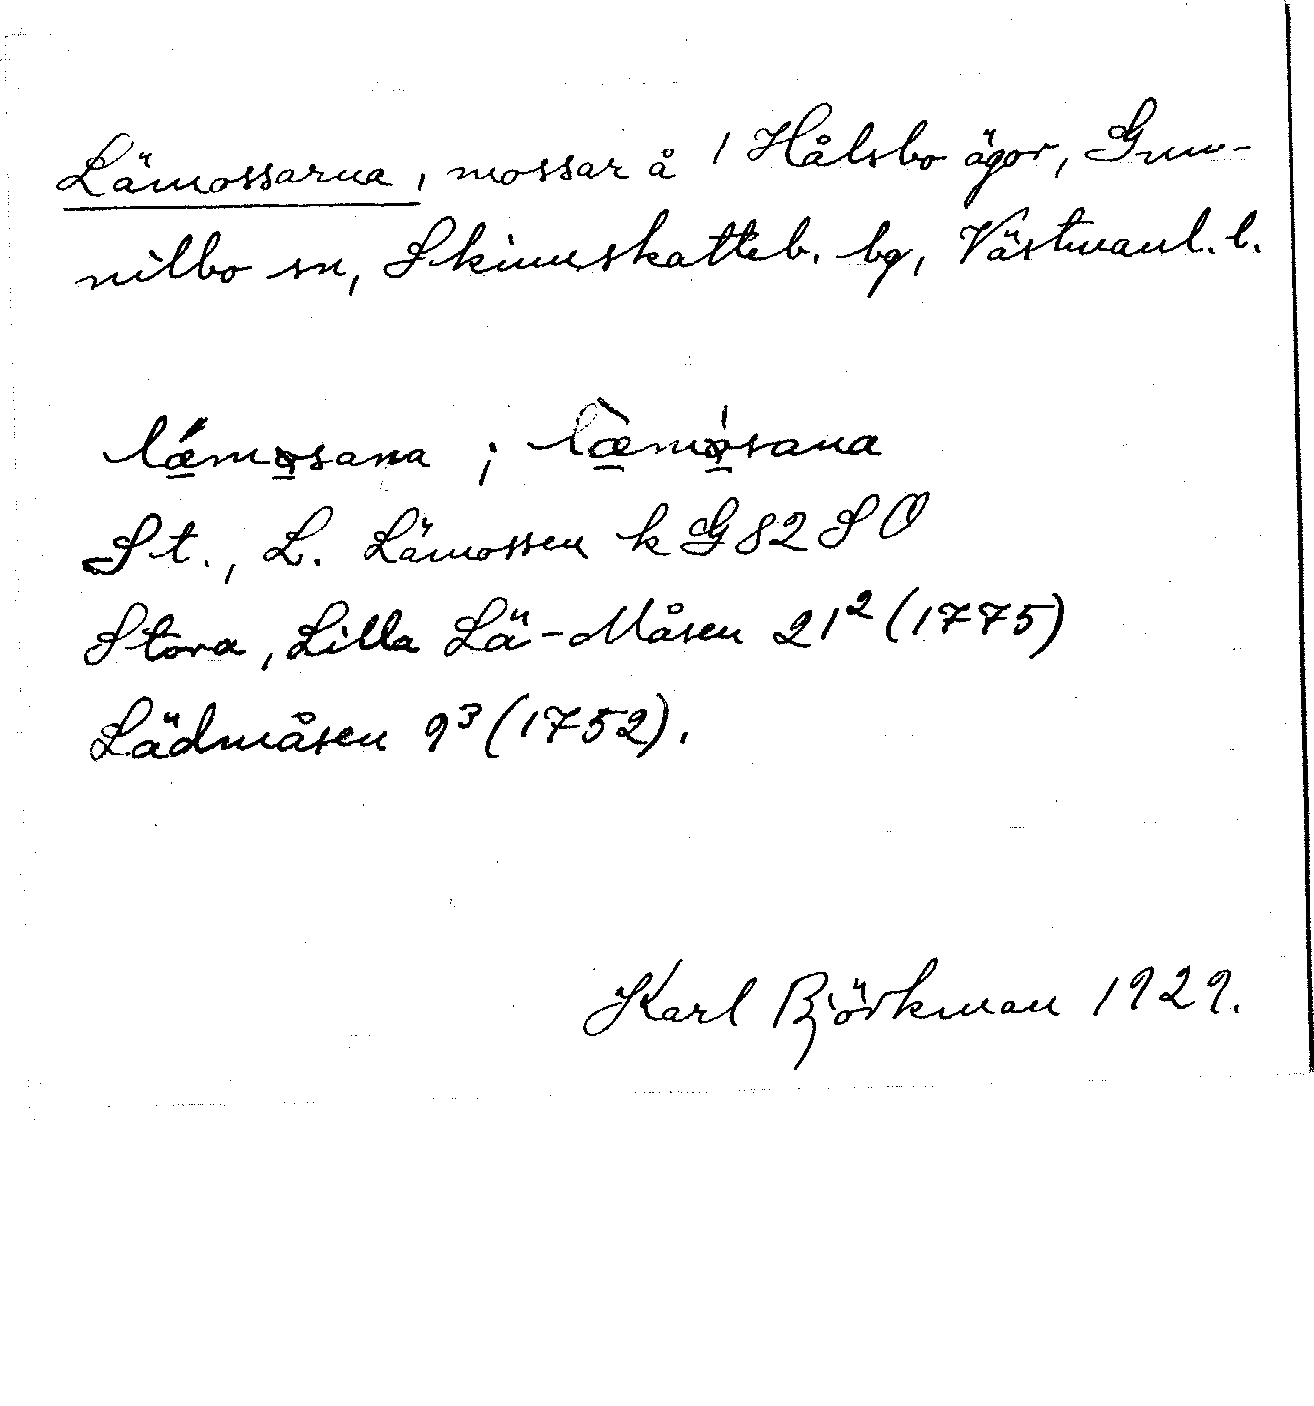 Lämossarna, mossar å 1 Hålsbo ägor, Gun-
nilbo sn, Skinnskatteb. bg, Västmanl. l.
lǽmo̲sana ; læ̀mo̲sana
St., L. Lämossen k G 82 S O
Stora, Lilla Lä-Måsen 21² (1775)
Lädmåsen 9³ (1752).
Karl Björkman 1929.